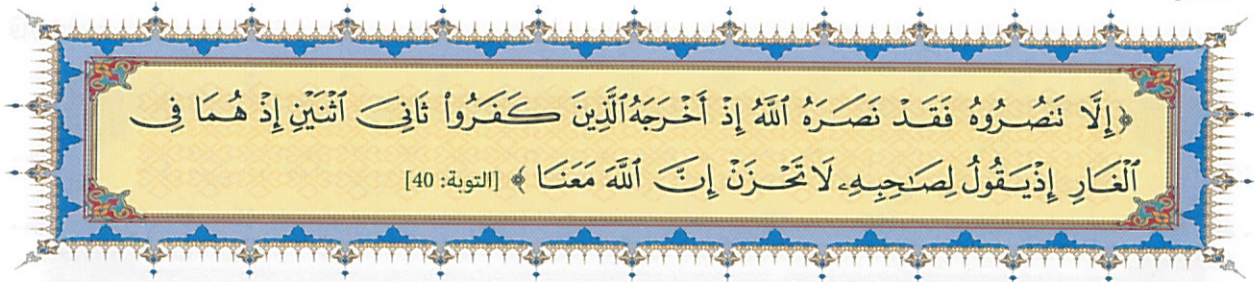 ﴿إِلَّا تَنصُرُوهُ فَقَدْ نَصَرَهُ ٱللَّهُ إِذْ أَخْرَجَهُ ٱلَّذِينَ كَفَرُواْ ثَانِيَ ٱثْنَيْنِ إِذْ هُمَا فِي
ٱلْغَارِ إِذْ يَقُولُ لِصَٰحِبِهِۦ لَا تَحْزَنْ إِنَّ ٱللَّهَ مَعَنَا﴾ [التوبة: 40]